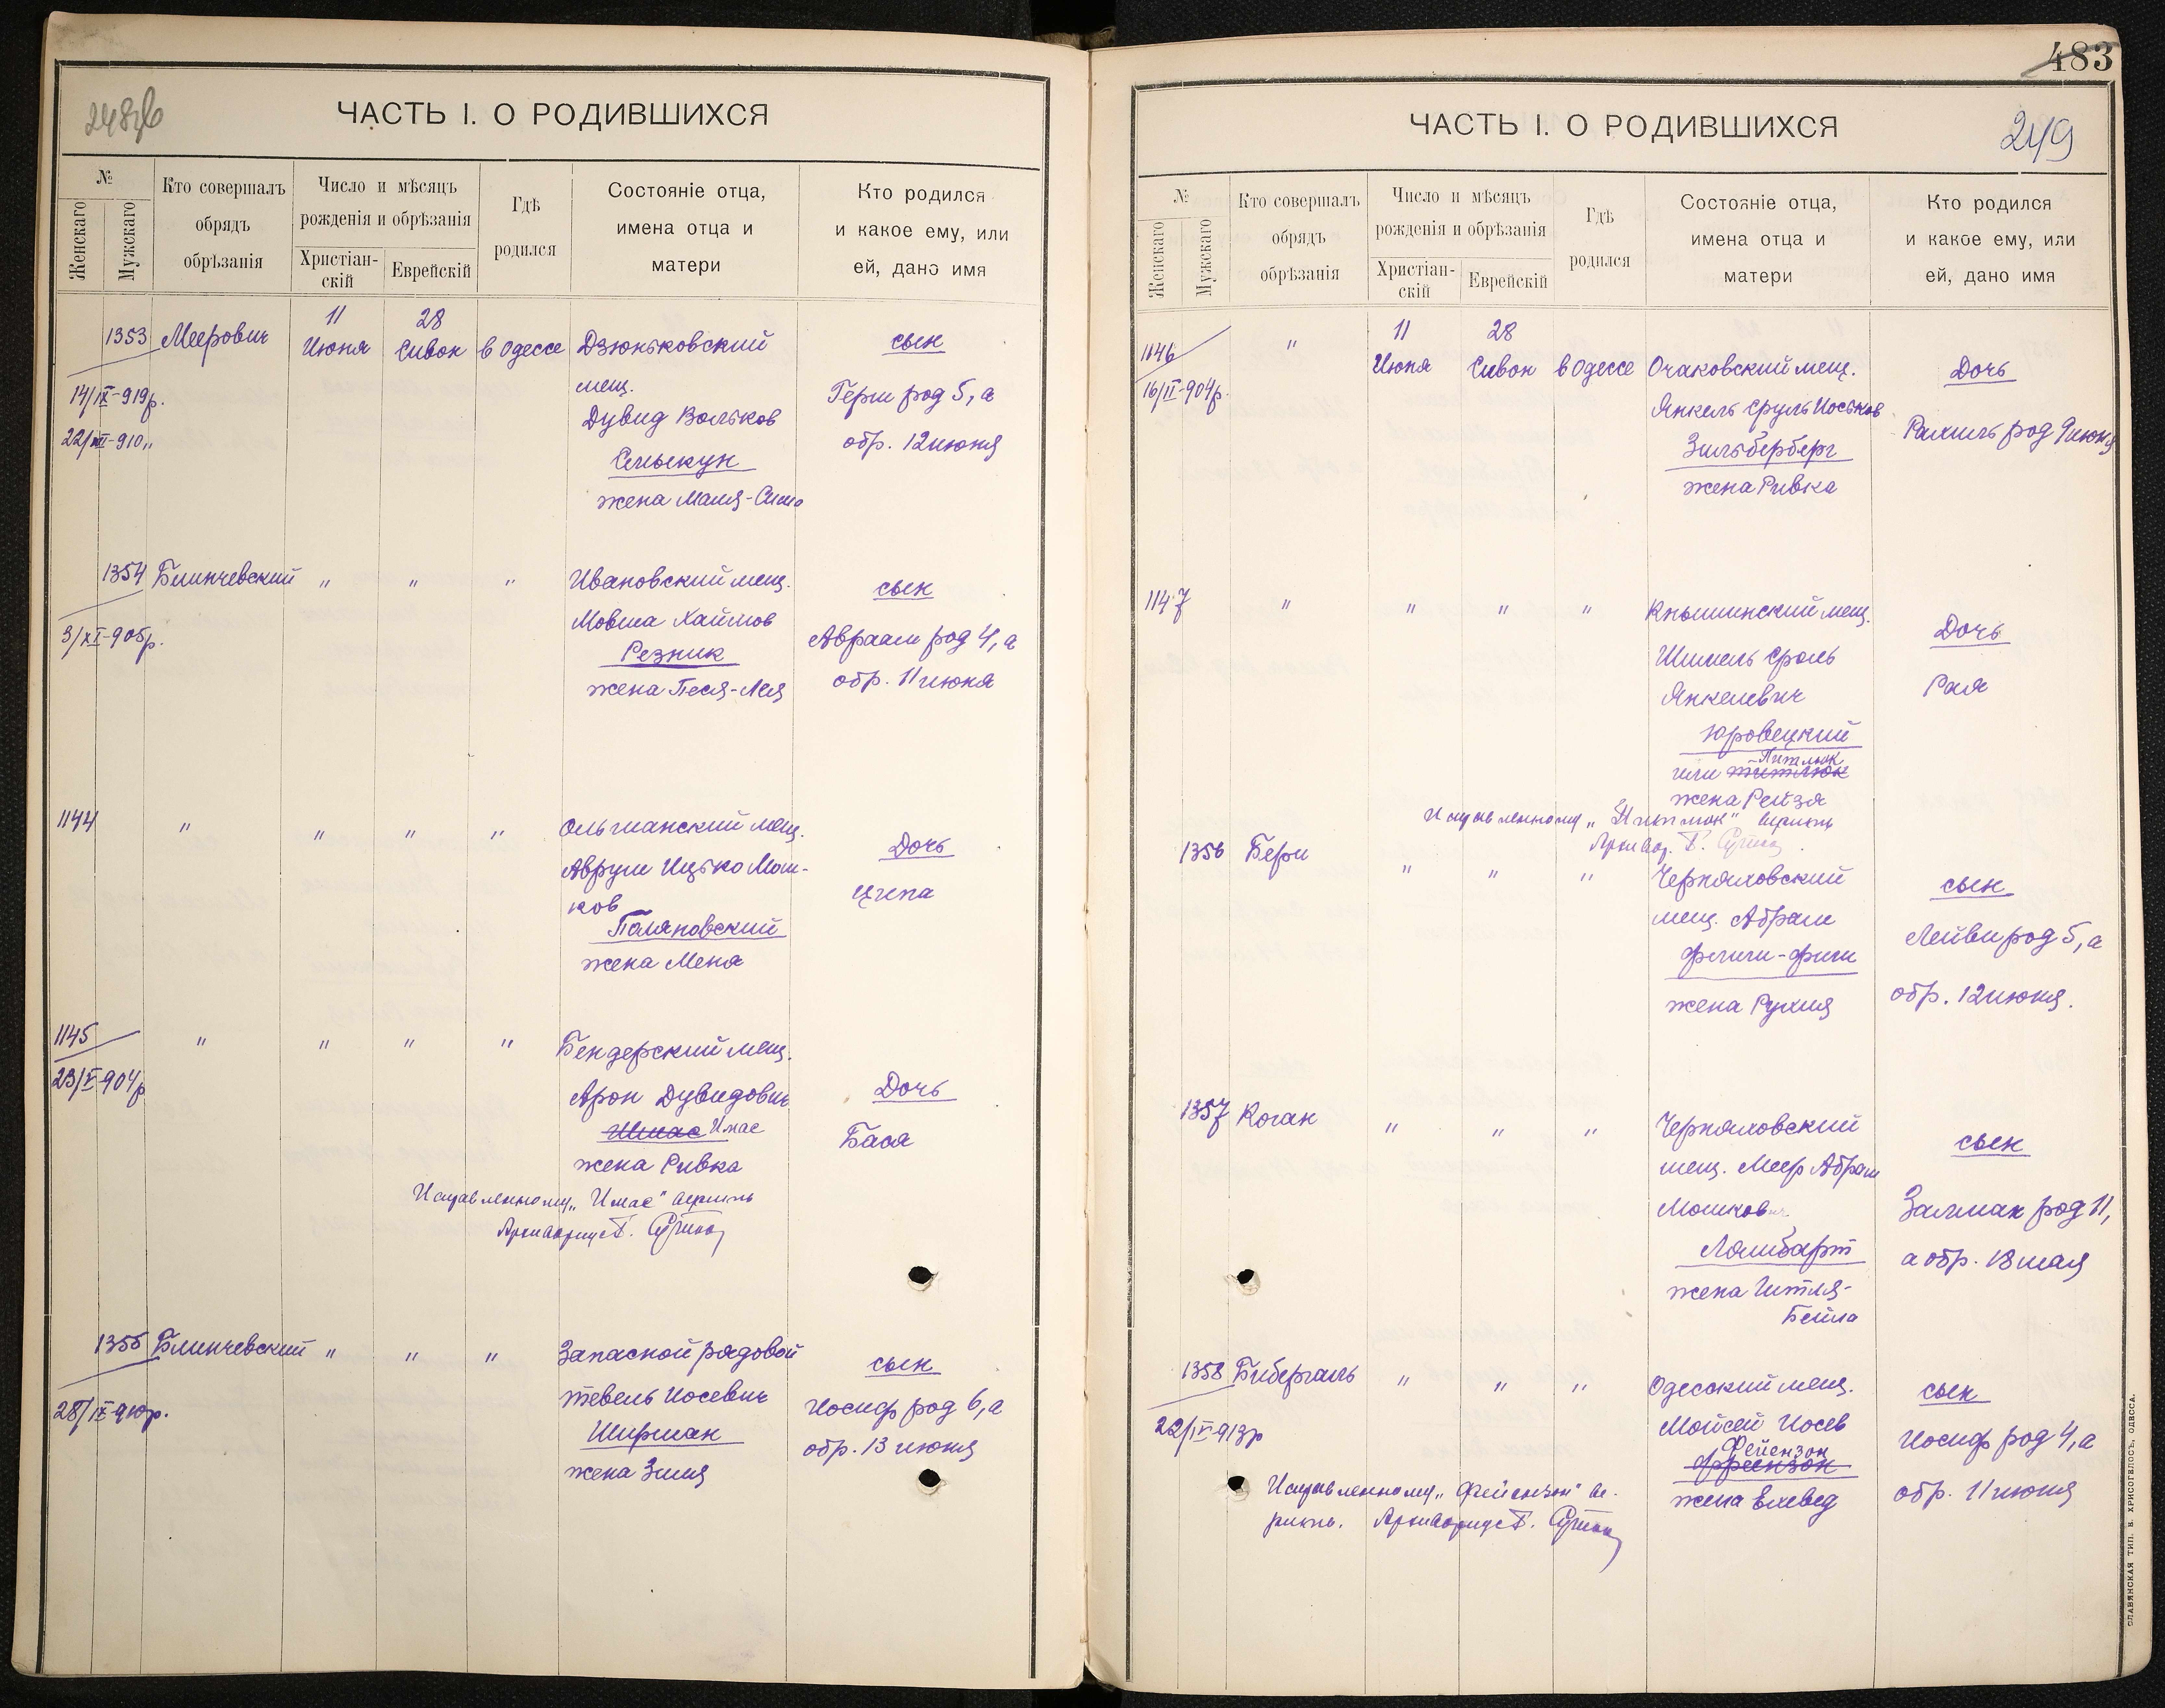 248 об
ЧАСТЬ I. О РОДИВШИХСЯ
№
Женскаго
Мужскаго
Кто совершалъ
обрядъ
обрѣзанія
Число и мѣсяцъ
рожденія и обрѣзанія
Христіан-
скій
Еврейскій
Гдѣ
родился
Состояніе отца,
имена отца и
матери
Кто родился
и какое ему, или
ей, дано имя
1353 Меерович 11 Июня 28 Сивон в Одессе Дзюньковский сын
14/IX-919р.
22/XII-910 "
мещ.
Дувид Вольков
Семыкун
жена Маня-Сима
Герш род 5, а
обр. 12 июня
1354 Блинчевский " " " Ивановский мещ. сын
3/XI-905р.
Мовша Хаймов
Резник
жена Песя-Лея
Авраам род 4, а
обр. 11 июня
1144 " " " " Ольшанский мещ. Дочь
Аврум Ицько Мош-
ков
Поляновский
жена Меня
Ципа
1145 " " " " Бендерский мещ.
23/V-904р
Арон Дувидович Дочь
Шмас Имас
жена Ривка
Бася
Исправленному „Имас" верить
Архивариус Г.
1355 Блинчевский " " " Запасной рядовой сын
28/IX-910р.
Тевель Иосевич
Ширман
жена Зися
Иосиф род 6, а
обр. 13 июня
483
ЧАСТЬ I. О РОДИВШИХСЯ
249
№
Женскаго
Мужскаго
Кто совершалъ
обрядъ
обрѣзанія
Число и мѣсяцъ
рожденія и обрѣзанія
Христіан-
скій
Еврейскій
Гдѣ
родился
Состояніе отца,
имена отца и
матери
Кто родился
и какое ему, или
ей, дано имя
1146 " 11 Июня 28 Сивон в Одессе Очаковский мещ. Дочь
16/II-904р.
Янкель Сруль Иоськов
Зильберберг
жена Ривка
Рахиль род 9 июня
1147 " " " " Кнышинский мещ. Дочь
Шмиель Сроль
Янкелевич
Юровецкий
Питлюк
или Титлюк
жена Рейзя
Рая
Исправленному „Питлюк" верить
Архивар. Г.
1356 Бери " " " Черняховский сын
мещ. Абрам
жена Рухля
Лейви род 5, а
обр. 12 июня.
1357 Коган " " " Черняховский сын
мещ. Меер Абрам
Мошкович
Ломбарт
жена Гитля-
Бейла
Залман род 11,
а обр. 18 мая
1358 Бибергаль " " " Одесский мещ. сын
22/IV-913р
Мойсей Иосев
Фейензон
Фреензон
жена Ехевед
Иосиф род 4, а
обр. 11 июня
Исправленному „Фейензон" ве-
рить. Архивариус Г.
СЛАВЯНСКАЯ ТИП. Е. ХРИСОГЕЛОСЪ, ОДЕССА.